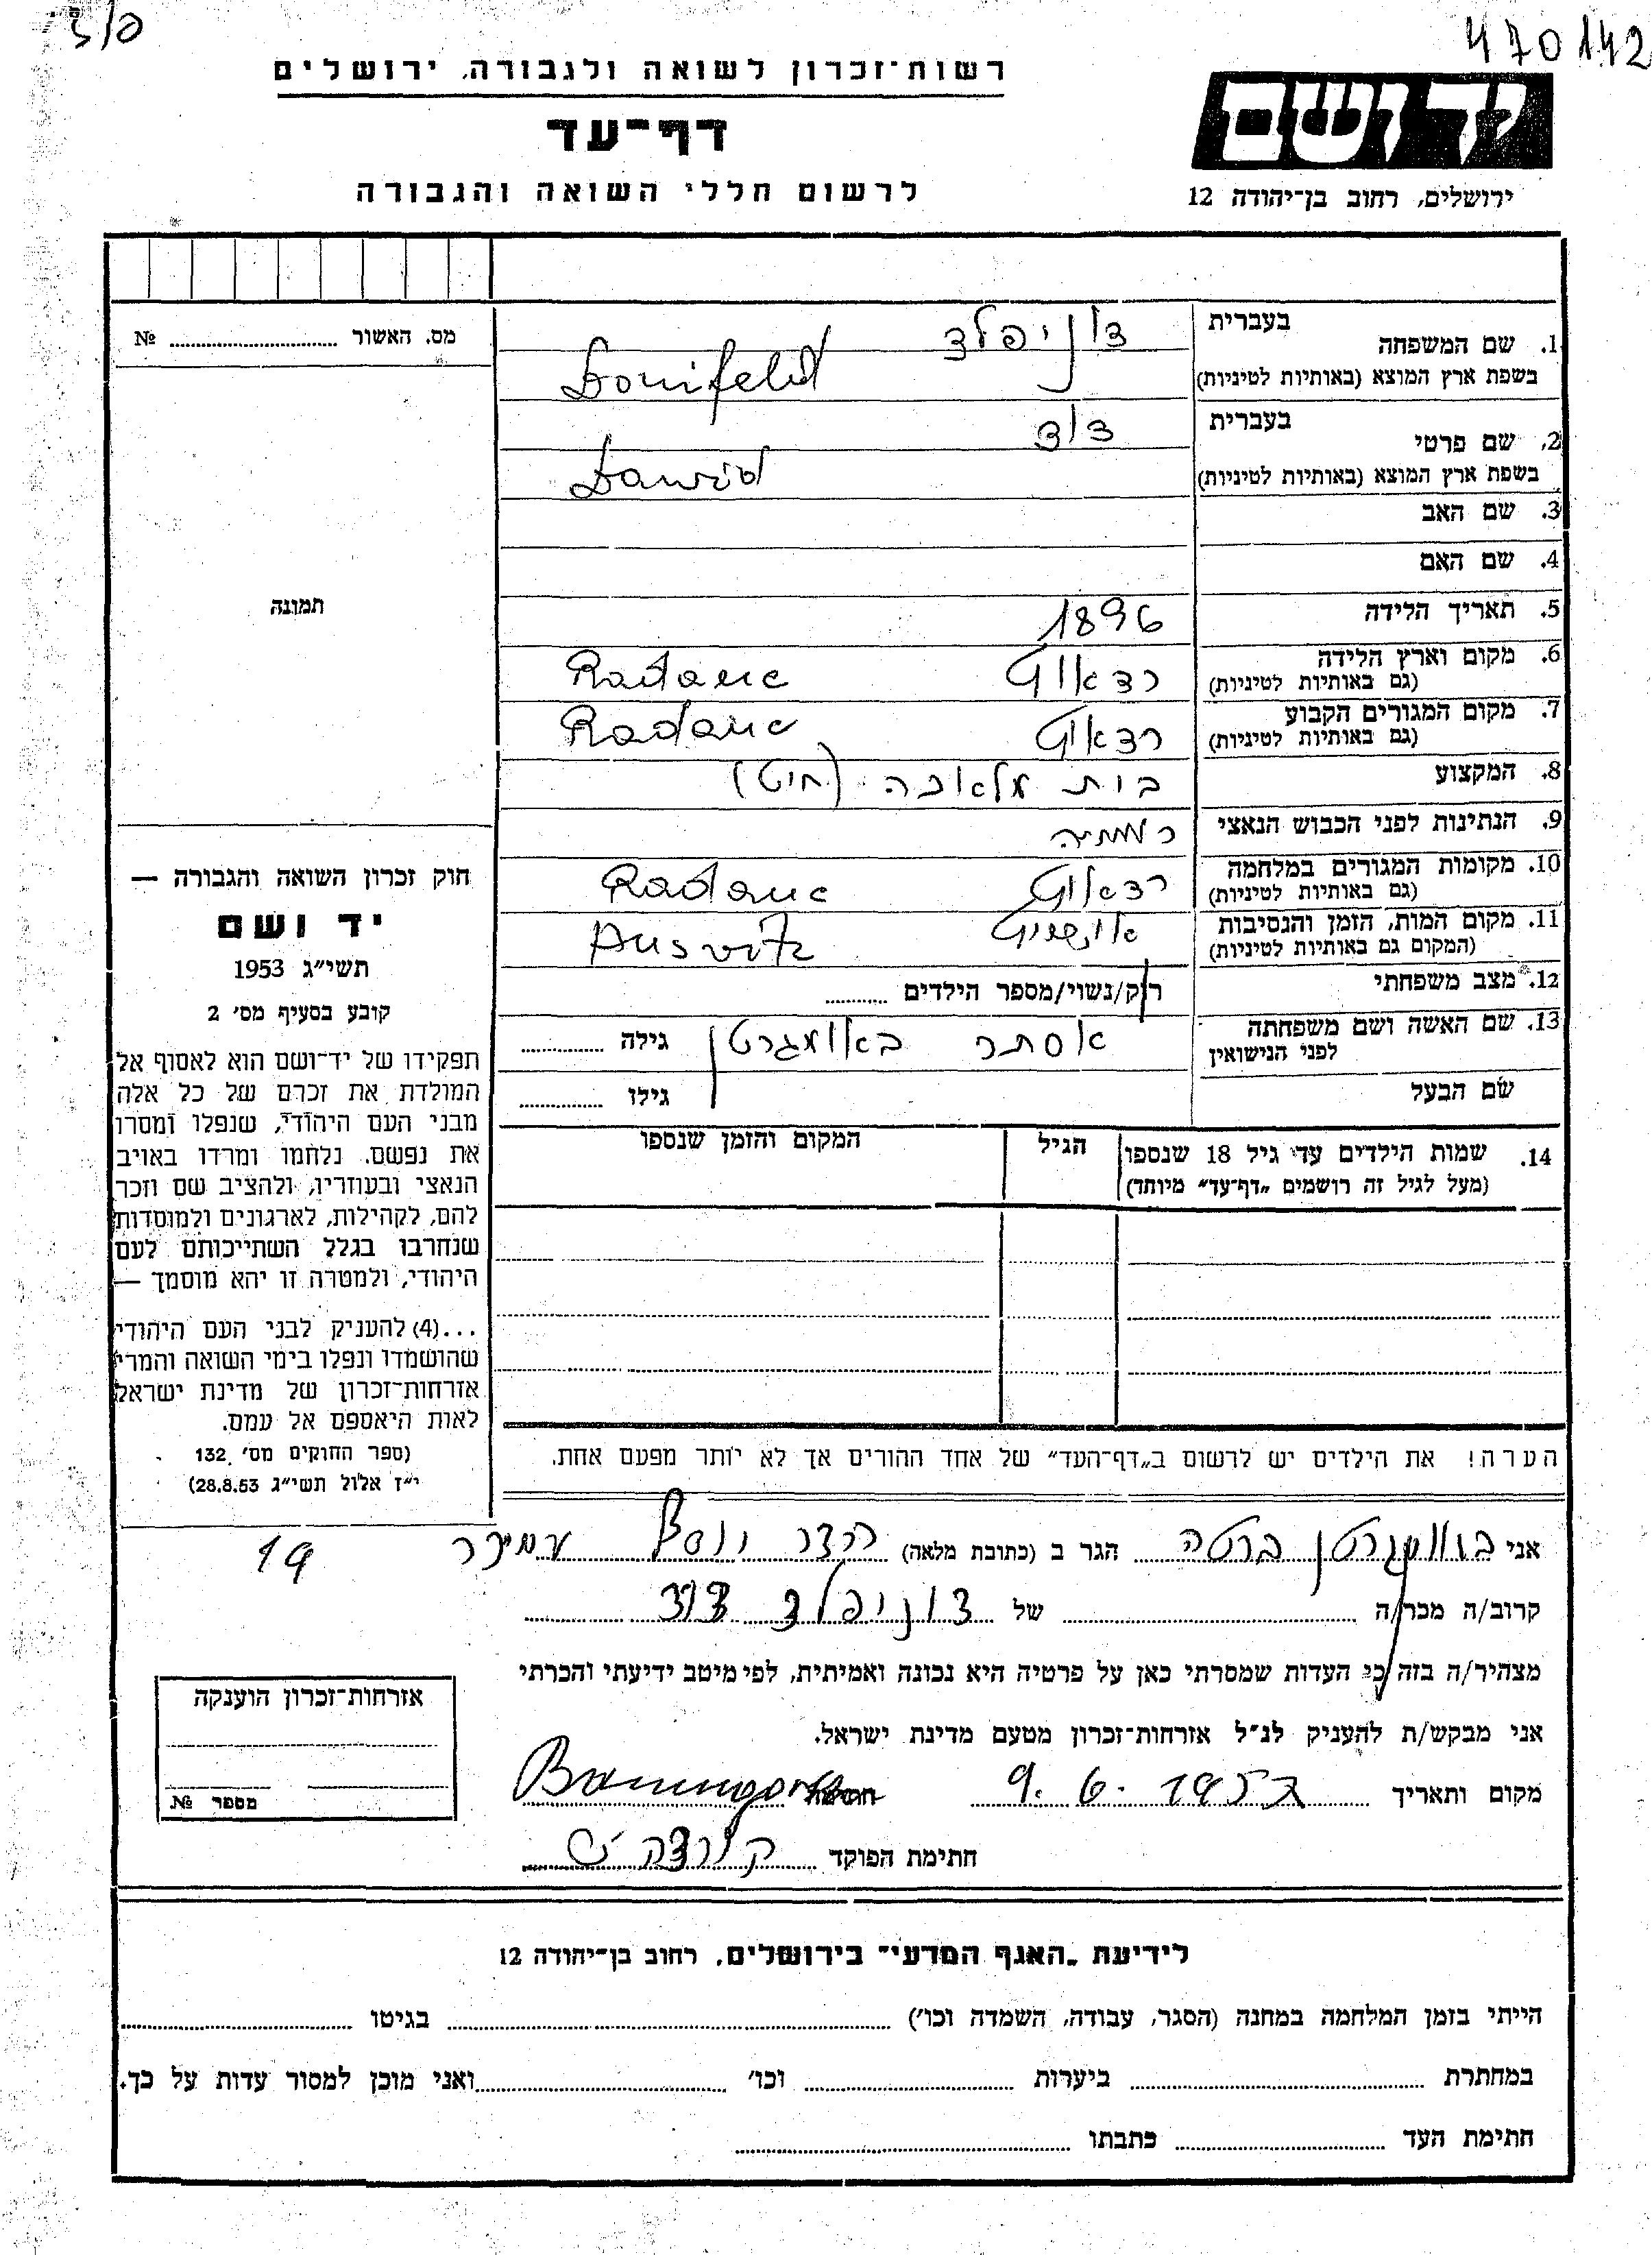 470142
רשות־זכרון לשואה ולגבורה, ירושלים
יד ושם
דף־עד
ירושלים, רחוב בן־יהודה 12
לרשום חללי השואה והגבורה
מס. האשור ........ №
תמונה
1. שם המשפחה בעברית דוניפלד
בשפת ארץ המוצא (באותיות לטיניות) Donifeld
2. שם פרטי בעברית דוד
בשפת ארץ המוצא (באותיות לטיניות) Dawid
3. שם האב
4. שם האם
5. תאריך הלידה 1896
6. מקום וארץ הלידה (גם באותיות לטיניות) רדאוץ Radauc
7. מקום המגורים הקבוע (גם באותיות לטיניות) רדאוץ Radauc
8. המקצוע (חיט)
9. הנתינות לפני הכבוש הנאצי
10. מקומות המגורים במלחמה (גם באותיות לטיניות) רדאוץ Radauc
11. מקום המות, הזמן והנסיבות (המקום גם באותיות לטיניות) אושויץ Ausvitz
12. מצב משפחתי רוק/נשוי/מספר הילדים ........
13. שם האשה ושם משפחתה לפני הנישואין אסתר באומגרטן גילה ........
שם הבעל גילו ........
14. שמות הילדים עד גיל 18 שנספו (מעל לגיל זה רושמים "דף־עד" מיוחד) הגיל המקום והזמן שנספו
הערה! את הילדים יש לרשום ב"דף־העד" של אחד ההורים אך לא יותר מפעם אחת.
חוק זכרון השואה והגבורה —
יד ושם
תשי״ג 1953
קובע בסעיף מס׳ 2
תפקידו של יד־ושם הוא לאסוף אל
המולדת את זכרם של כל אלה
מבני העם היהודי, שנפלו ומסרו
את נפשם, נלחמו ומרדו באויב
הנאצי ובעוזריו, ולהציב שם וזכר
להם, לקהילות, לארגונים ולמוסדות
שנחרבו בגלל השתייכותם לעם
היהודי, ולמטרה זו יהא מוסמך —
...(4) להעניק לבני העם היהודי
שהושמדו ונפלו בימי השואה והמרי
אזרחות־זכרון של מדינת ישראל
לאות היאספם אל עמם.
(ספר החוקים מס׳ 132,
י״ז אלול תשי״ג 28.8.53)
אני באומגרטן ברטה הגר ב (כתובת מלאה) עמידר 19
קרוב/ה מכר/ה ........ של דוניפלד דוד
מצהיר/ה בזה כי העדות שמסרתי כאן על פרטיה היא נכונה ואמיתית, לפי מיטב ידיעתי והכרתי
אני מבקש/ת להעניק לנ״ל אזרחות־זכרון מטעם מדינת ישראל.
מקום ותאריך 9.6.1957 חתימה
חתימת הפוקד
אזרחות־זכרון הוענקה
מספר №
לידיעת "האגף המדעי" בירושלים, רחוב בן־יהודה 12
הייתי בזמן המלחמה במחנה (הסגר, עבודה, השמדה וכו׳) ........ בגיטו ........
במחתרת ........ ביערות ........ וכו׳ ........ ואני מוכן למסור עדות על כך.
חתימת העד ........ כתבתו ........